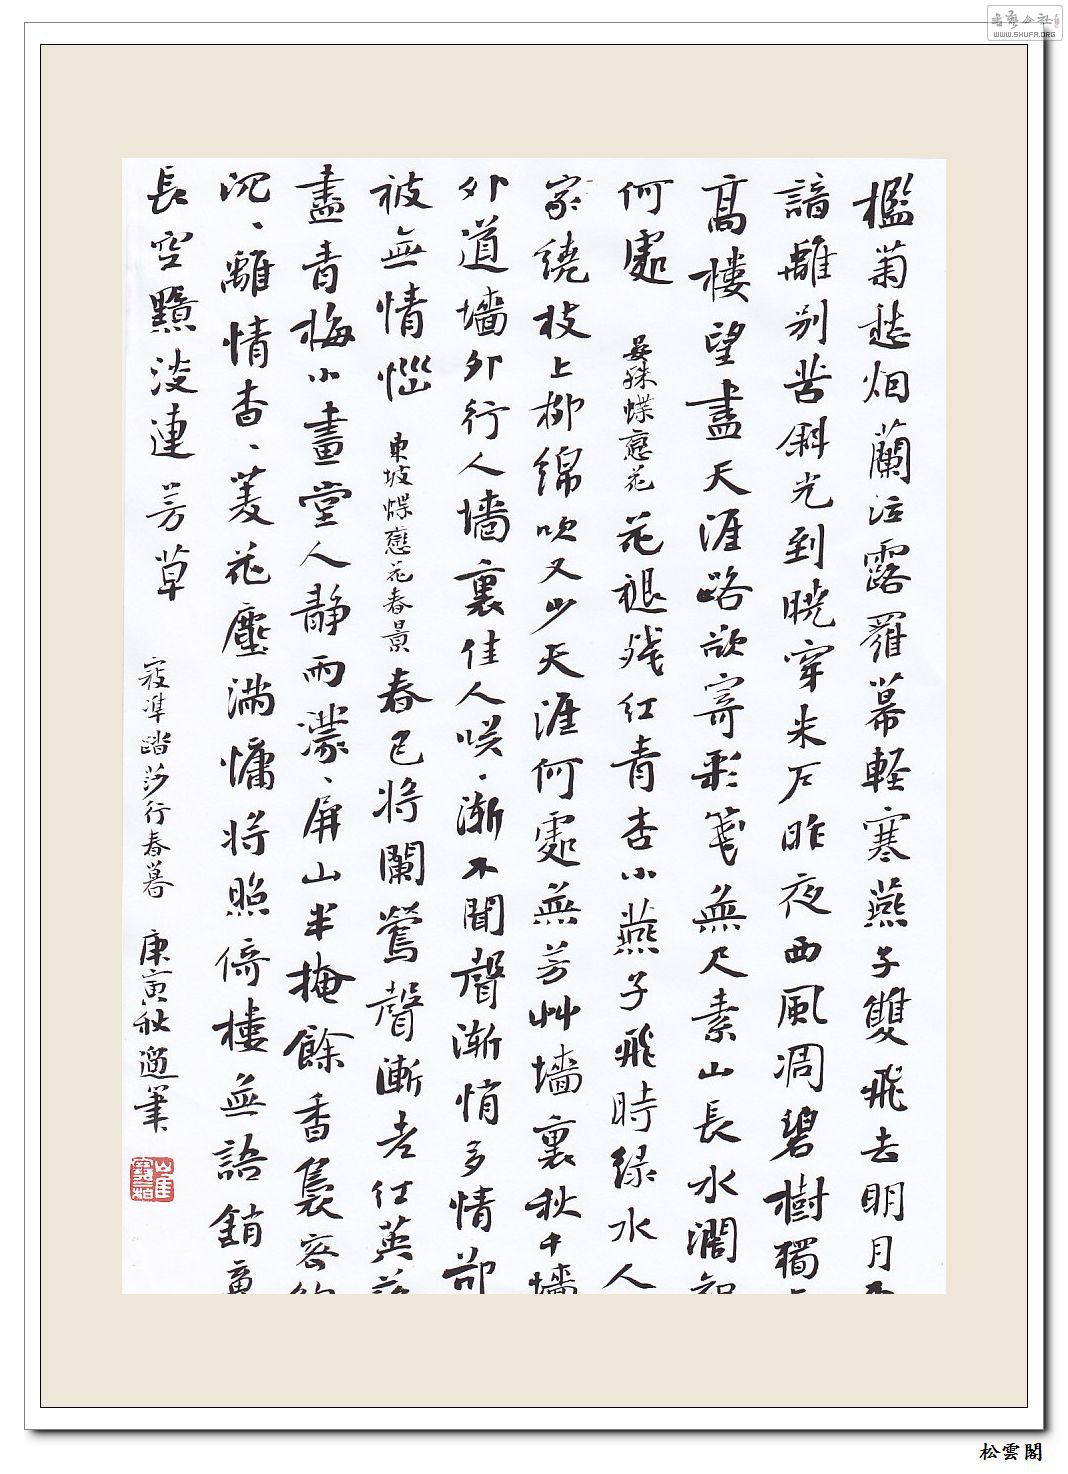 檻菊愁烟蘭泣露羅幕輕寒燕子雙飛去明月不
諳離别苦斜光到曉穿朱戶昨夜西風凋碧樹獨上
高樓望盡天涯路欲寄彩箋無尺素山長水濶知
何處 晏殊蝶戀花 花褪殘紅青杏小燕子飛時緑水人
家繞枝上柳綿吹又少天涯何處無芳艸墻裏秋千墻
外道墻外行人墻裏佳人咲、漸不聞聲漸悄多情却
被無情惱 東坡蝶戀花春景 春已將闌鶯聲漸老红英落
盡青梅小畫堂人静雨濛、屏山半掩餘香裊密約
沉、離情杳、菱花塵滿慵將照倚樓無語銷魂
長空黯淡連芳草 寇準踏莎行春暮 庚寅秋 筆
書法公社
WWW.SHUFA.ORG
松雲閣